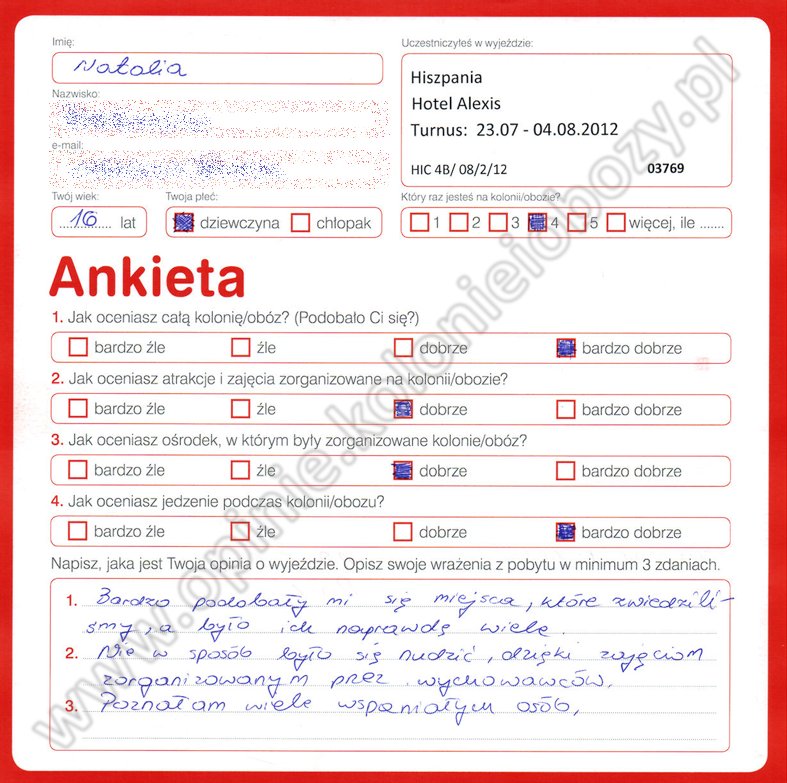 Imię:
Natalia
Nazwisko:
e-mail:
Uczestniczyłeś w wyjeździe:
Hiszpania
Hotel Alexis
Turnus: 23.07 - 04.08.2012
HIC 4B/ 08/2/12 03769
Twój wiek:
16 lat
Twoja płeć:
dziewczyna chłopak
Który raz jesteś na kolonii/obozie?
1 2 3 4 5 więcej, ile .......
Ankieta
1. Jak oceniasz całą kolonię/obóz? (Podobało Ci się?)
bardzo źle źle dobrze bardzo dobrze
2. Jak oceniasz atrakcje i zajęcia zorganizowane na kolonii/obozie?
bardzo źle źle dobrze bardzo dobrze
3. Jak oceniasz ośrodek, w którym były zorganizowane kolonie/obóz?
bardzo źle źle dobrze bardzo dobrze
4. Jak oceniasz jedzenie podczas kolonii/obozu?
bardzo źle źle dobrze bardzo dobrze
Napisz, jaka jest Twoja opinia o wyjeździe. Opisz swoje wrażenia z pobytu w minimum 3 zdaniach.
1. Bardzo podobały mi się miejsca, które zwiedzili-
śmy, a było ich naprawdę wiele.
2. Nie w sposób było się nudzić, dzięki zajęciom
zorganizowanym przez wychowawców.
3. Poznałam wiele wspaniałych osób,
www.opinie.kolonieiobozy.pl